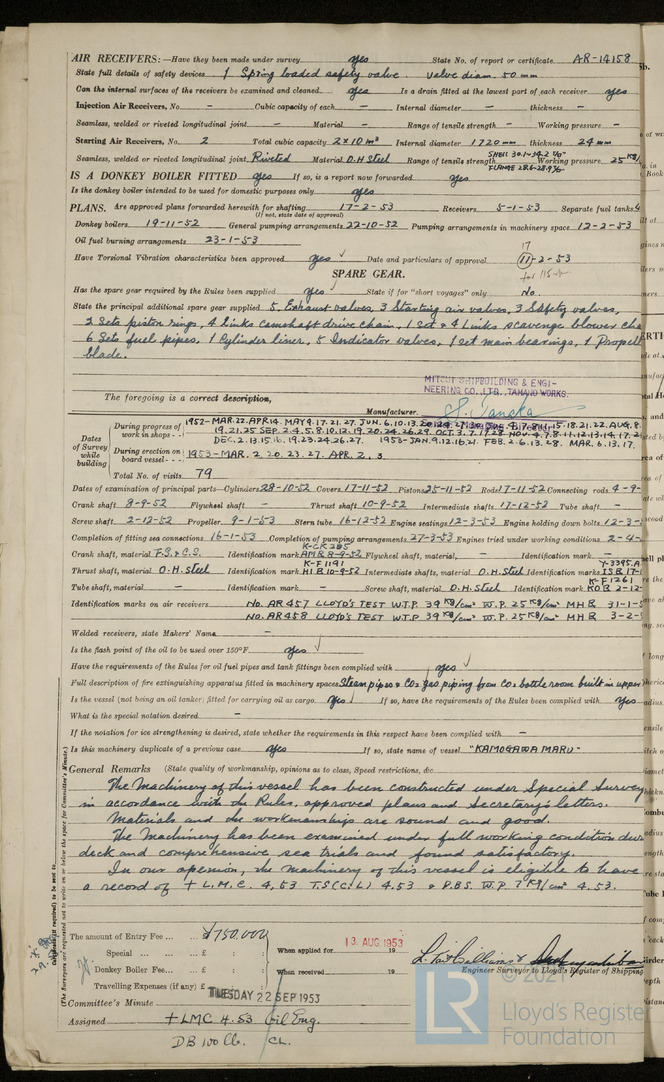 AIR RECEIVERS:—Have they been made under survey yes State No. of report or certificate AR-14158
State full details of safety devices 1 Spring loaded safety valve. valve diam. 50 mm
Can the internal surfaces of the receivers be examined and cleaned yes Is a drain fitted at the lowest part of each receiver yes
Injection Air Receivers, No. — Cubic capacity of each — Internal diameter — thickness —
Seamless, welded or riveted longitudinal joint — Material — Range of tensile strength — Working pressure —
Starting Air Receivers, No. 2 Total cubic capacity 2×10 m³ Internal diameter 1720 mm thickness 24 mm
Seamless, welded or riveted longitudinal joint Riveted Material O.H Steel Range of tensile strength SHELL 30.1-34.2 Working pressure 25 KG/
FLANGE 28.6-28.9
IS A DONKEY BOILER FITTED yes If so, is a report now forwarded yes
Is the donkey boiler intended to be used for domestic purposes only yes
PLANS. Are approved plans forwarded herewith for shafting 17-2-53 Receivers 5-1-53 Separate fuel tanks
(If not, state date of approval)
Donkey boilers 19-11-52 General pumping arrangements 22-10-52 Pumping arrangements in machinery space 12-2-53
Oil fuel burning arrangements 23-1-53
17
Have Torsional Vibration characteristics been approved yes Date and particulars of approval 11-2-53
SPARE GEAR.
Has the spare gear required by the Rules been supplied yes State if for "short voyages" only No.
State the principal additional spare gear supplied 5 Exhaust valves, 3 Starting air valves, 3 Safety valves,
2 Sets piston rings, 4 links camshaft drive chain, 1 Set & 4 Links scavenge blower cha
6 Sets fuel pipes, 1 Cylinder liner, 5 Indicator valves, 1 set main bearings, 1 Propell
blade.
MITSUI SHIPBUILDING & ENGI-
NEERING CO., LTD., TAMANO WORKS.
The foregoing is a correct description,
Manufacturer.
Dates of Survey while building
During progress of work in shops - - 1952-MAR.22.APR.14. MAY.9.17.21.27. JUN.6.10.13.
DEC.2.13.15.16.19.23.24.26.27. 1953-JAN.9.12.16.21. FEB.2.6.13.28. MAR.6.13.17.
During erection on board vessel - - 1953-MAR.2.20.23.27. APR.2.3
Total No. of visits 79
Dates of examination of principal parts—Cylinders 28-10-52 Covers 17-11-52 Pistons 25-11-52 Rods 17-11-52 Connecting rods 4-9-
Crank shaft 8-9-52 Flywheel shaft — Thrust shaft 10-9-52 Intermediate shafts 17-12-52 Tube shaft —
Screw shaft 2-12-52 Propeller 9-1-53 Stern tube 16-12-52 Engine seatings 12-3-53 Engine holding down bolts 12-3-
Completion of fitting sea connections 16-1-53 Completion of pumping arrangements 27-3-53 Engines tried under working conditions 2-4-
K-CK 285
Crank shaft, material F.S. & C.S. Identification mark AMB 8-9-52 Flywheel shaft, material — Identification mark —
K-F1191 Y-3395.A
Thrust shaft, material O.H. steel Identification mark HIB 10-9-52 Intermediate shafts, material O.H. Steel Identification marks ISB 17-1
K-F1261
Tube shaft, material — Identification mark — Screw shaft, material O.H. Steel Identification mark KOB 2-12-
Identification marks on air receivers No. AR457 LLOYD'S TEST W.T.P. 39 KG/cm² W.P. 25 KG/cm² MHB 31-1-5
No. AR458 LLOYD'S TEST W.T.P. 39 KG/cm² W.P. 25 KG/cm² MHB 3-2-5
Welded receivers, state Makers' Name —
Is the flash point of the oil to be used over 150°F. yes
Have the requirements of the Rules for oil fuel pipes and tank fittings been complied with yes
Full description of fire extinguishing apparatus fitted in machinery spaces Steam pipes & CO₂ gas piping from CO₂ bottle room built in upper
Is the vessel (not being an oil tanker) fitted for carrying oil as cargo yes If so, have the requirements of the Rules been complied with yes
What is the special notation desired —
If the notation for ice strengthening is desired, state whether the requirements in this respect have been complied with —
Is this machinery duplicate of a previous case yes If so, state name of vessel "KAMOGAWA MARU"
General Remarks (State quality of workmanship, opinions as to class, Speed restrictions, &c
The Machinery of this vessel has been constructed under Special Survey
in accordance with the Rules, approved plans and Secretary's letters.
Materials and the workmanships are sound and good.
The Machinery has been examined under full working condition dur
deck and comprehensive sea trials and found satisfactory.
In our openion, the machinery of this vessel is eligible to have
a record of + L.M.C. 4.53 T.S (C.L) 4.53 & D.B.S. W.P. 7 KG/cm² 4.53.
The amount of Entry Fee ... ¥750,000
Special ... £ : :
Donkey Boiler Fee... £ : :
Travelling Expenses (if any) £ : :
When applied for 13 AUG 1953 19
When received 19
Engineer Surveyor to Lloyd's Register of Shipping
Committee's Minute TUESDAY 22 SEP 1953
Assigned + LMC 4.53 Oil Eng.
DB 100 lb. CL.
(The Surveyors are requested not to write on or below the space for Committee's Minute.)
© 2021
LR
Lloyd's Register
Foundation